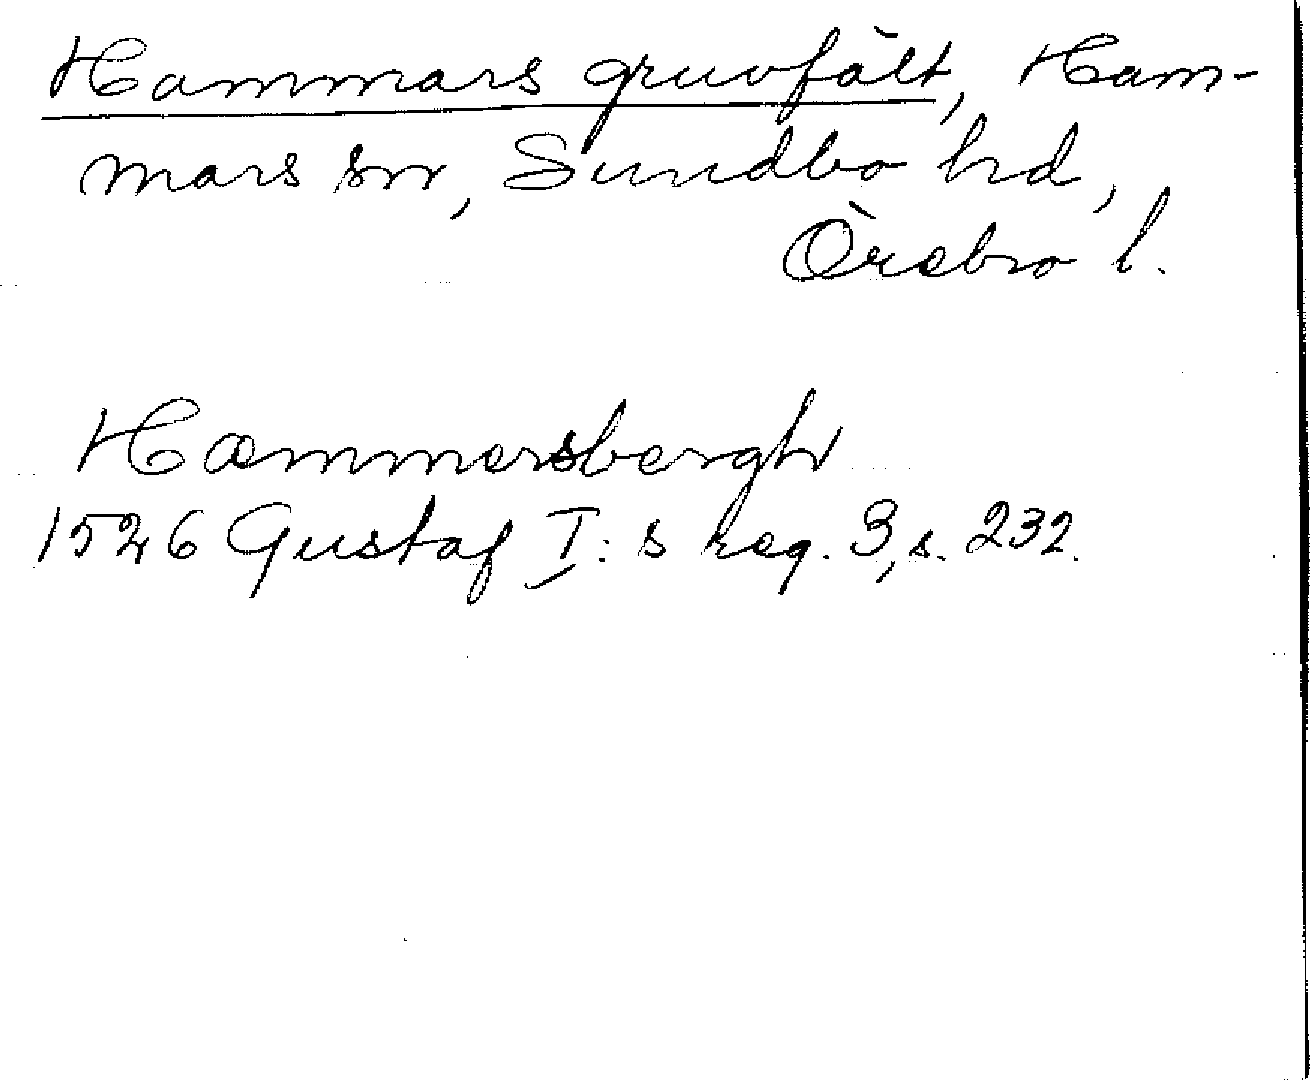 Hammars gruvfält, Ham-
mars sn, Sundbo hd,
Örebro l.
Hæmmersbergh
1526 Gustaf I:s reg. 3, s. 232.